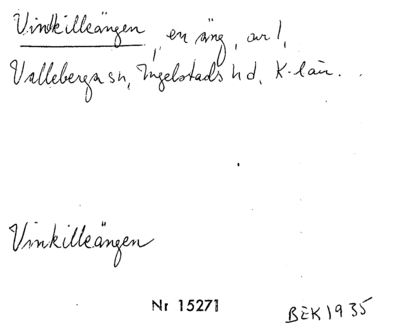 Vinkilleängen, en äng, ar 1,
Valleberga sn, Ingelstads hd, K-län.
Vinkilleängen
Nr 15271
BEK 1935